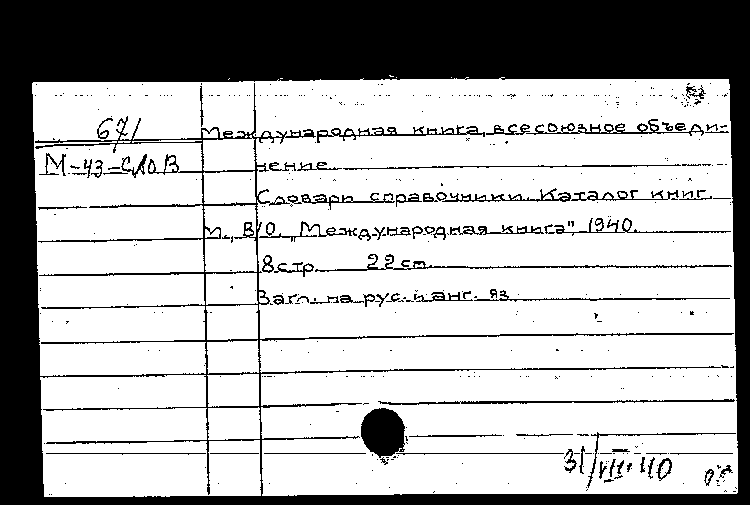 671
Международная книга, всесоюзное объеди-
М-43-СЛОВ
нение.
Словари справочники. Каталог книг.
М., В/О. „Международная книга", 1940.
8 стр. 22 см.
Загл. на рус. и анг. яз.
31/VIII-40